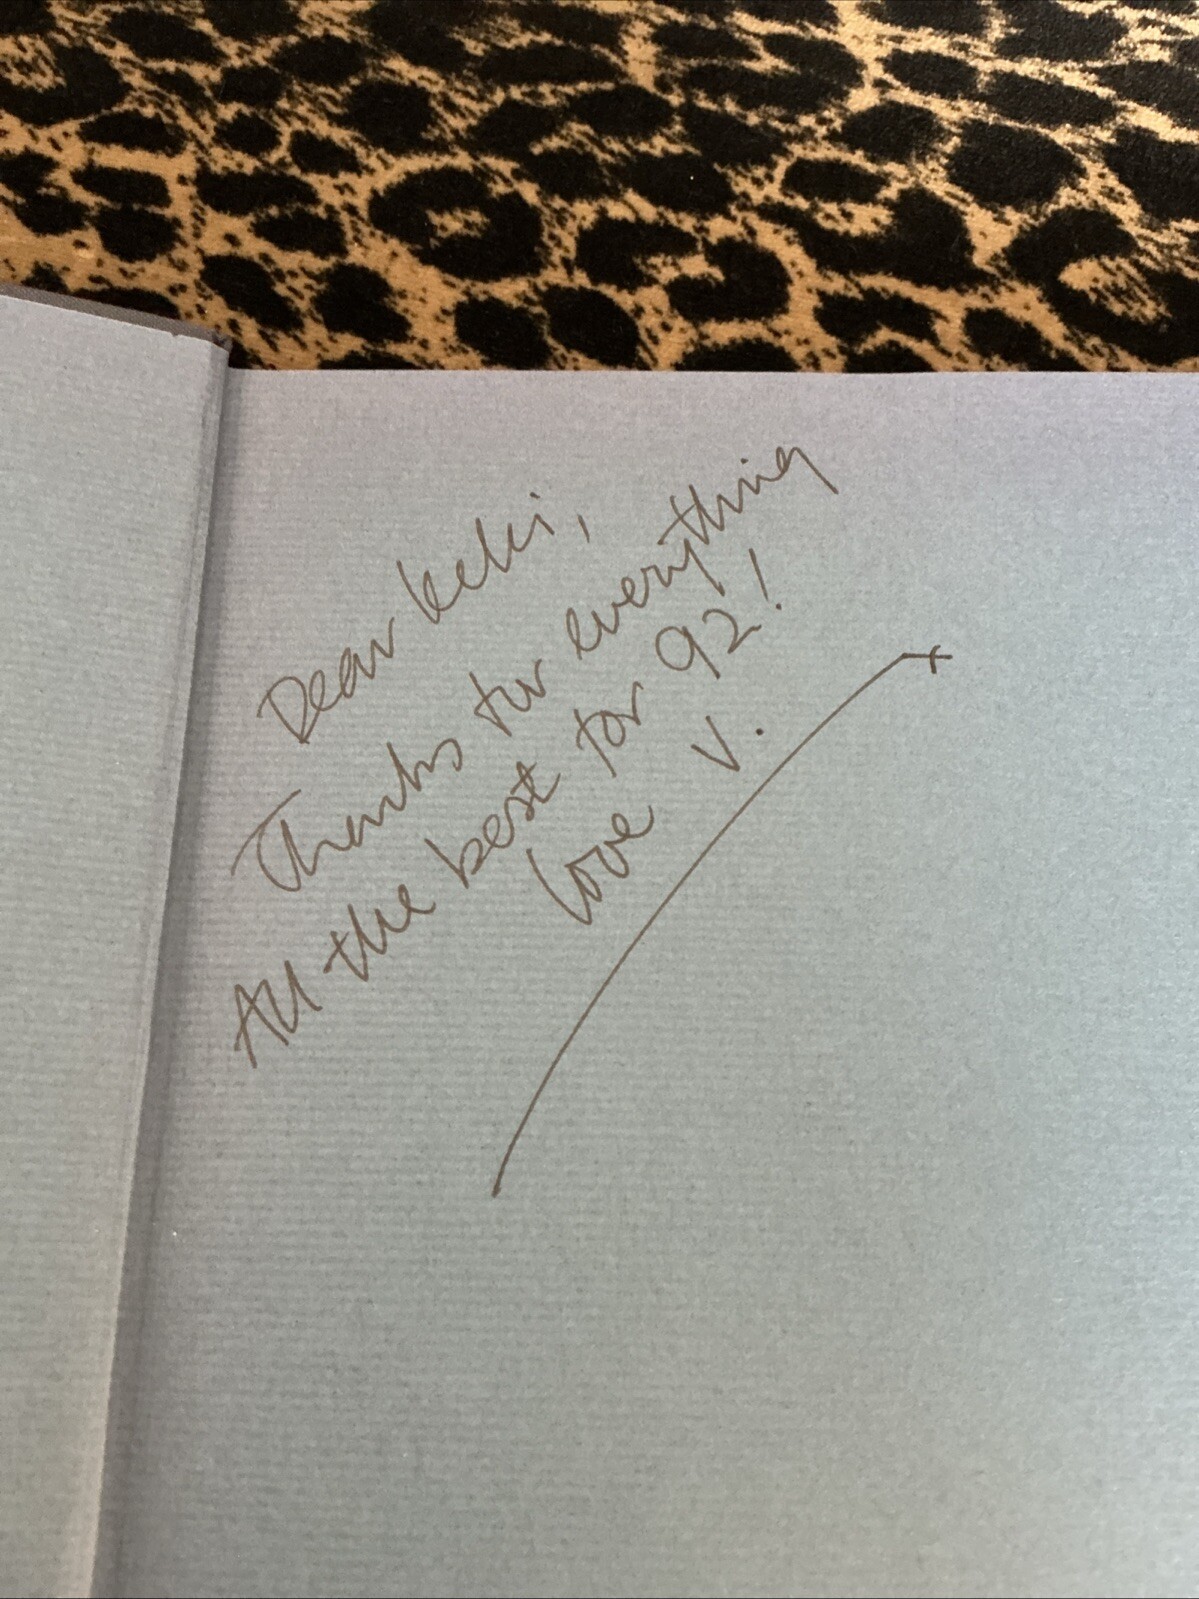 Dear Keki,
Thanks for everything
All the best for 92!
love V.
x